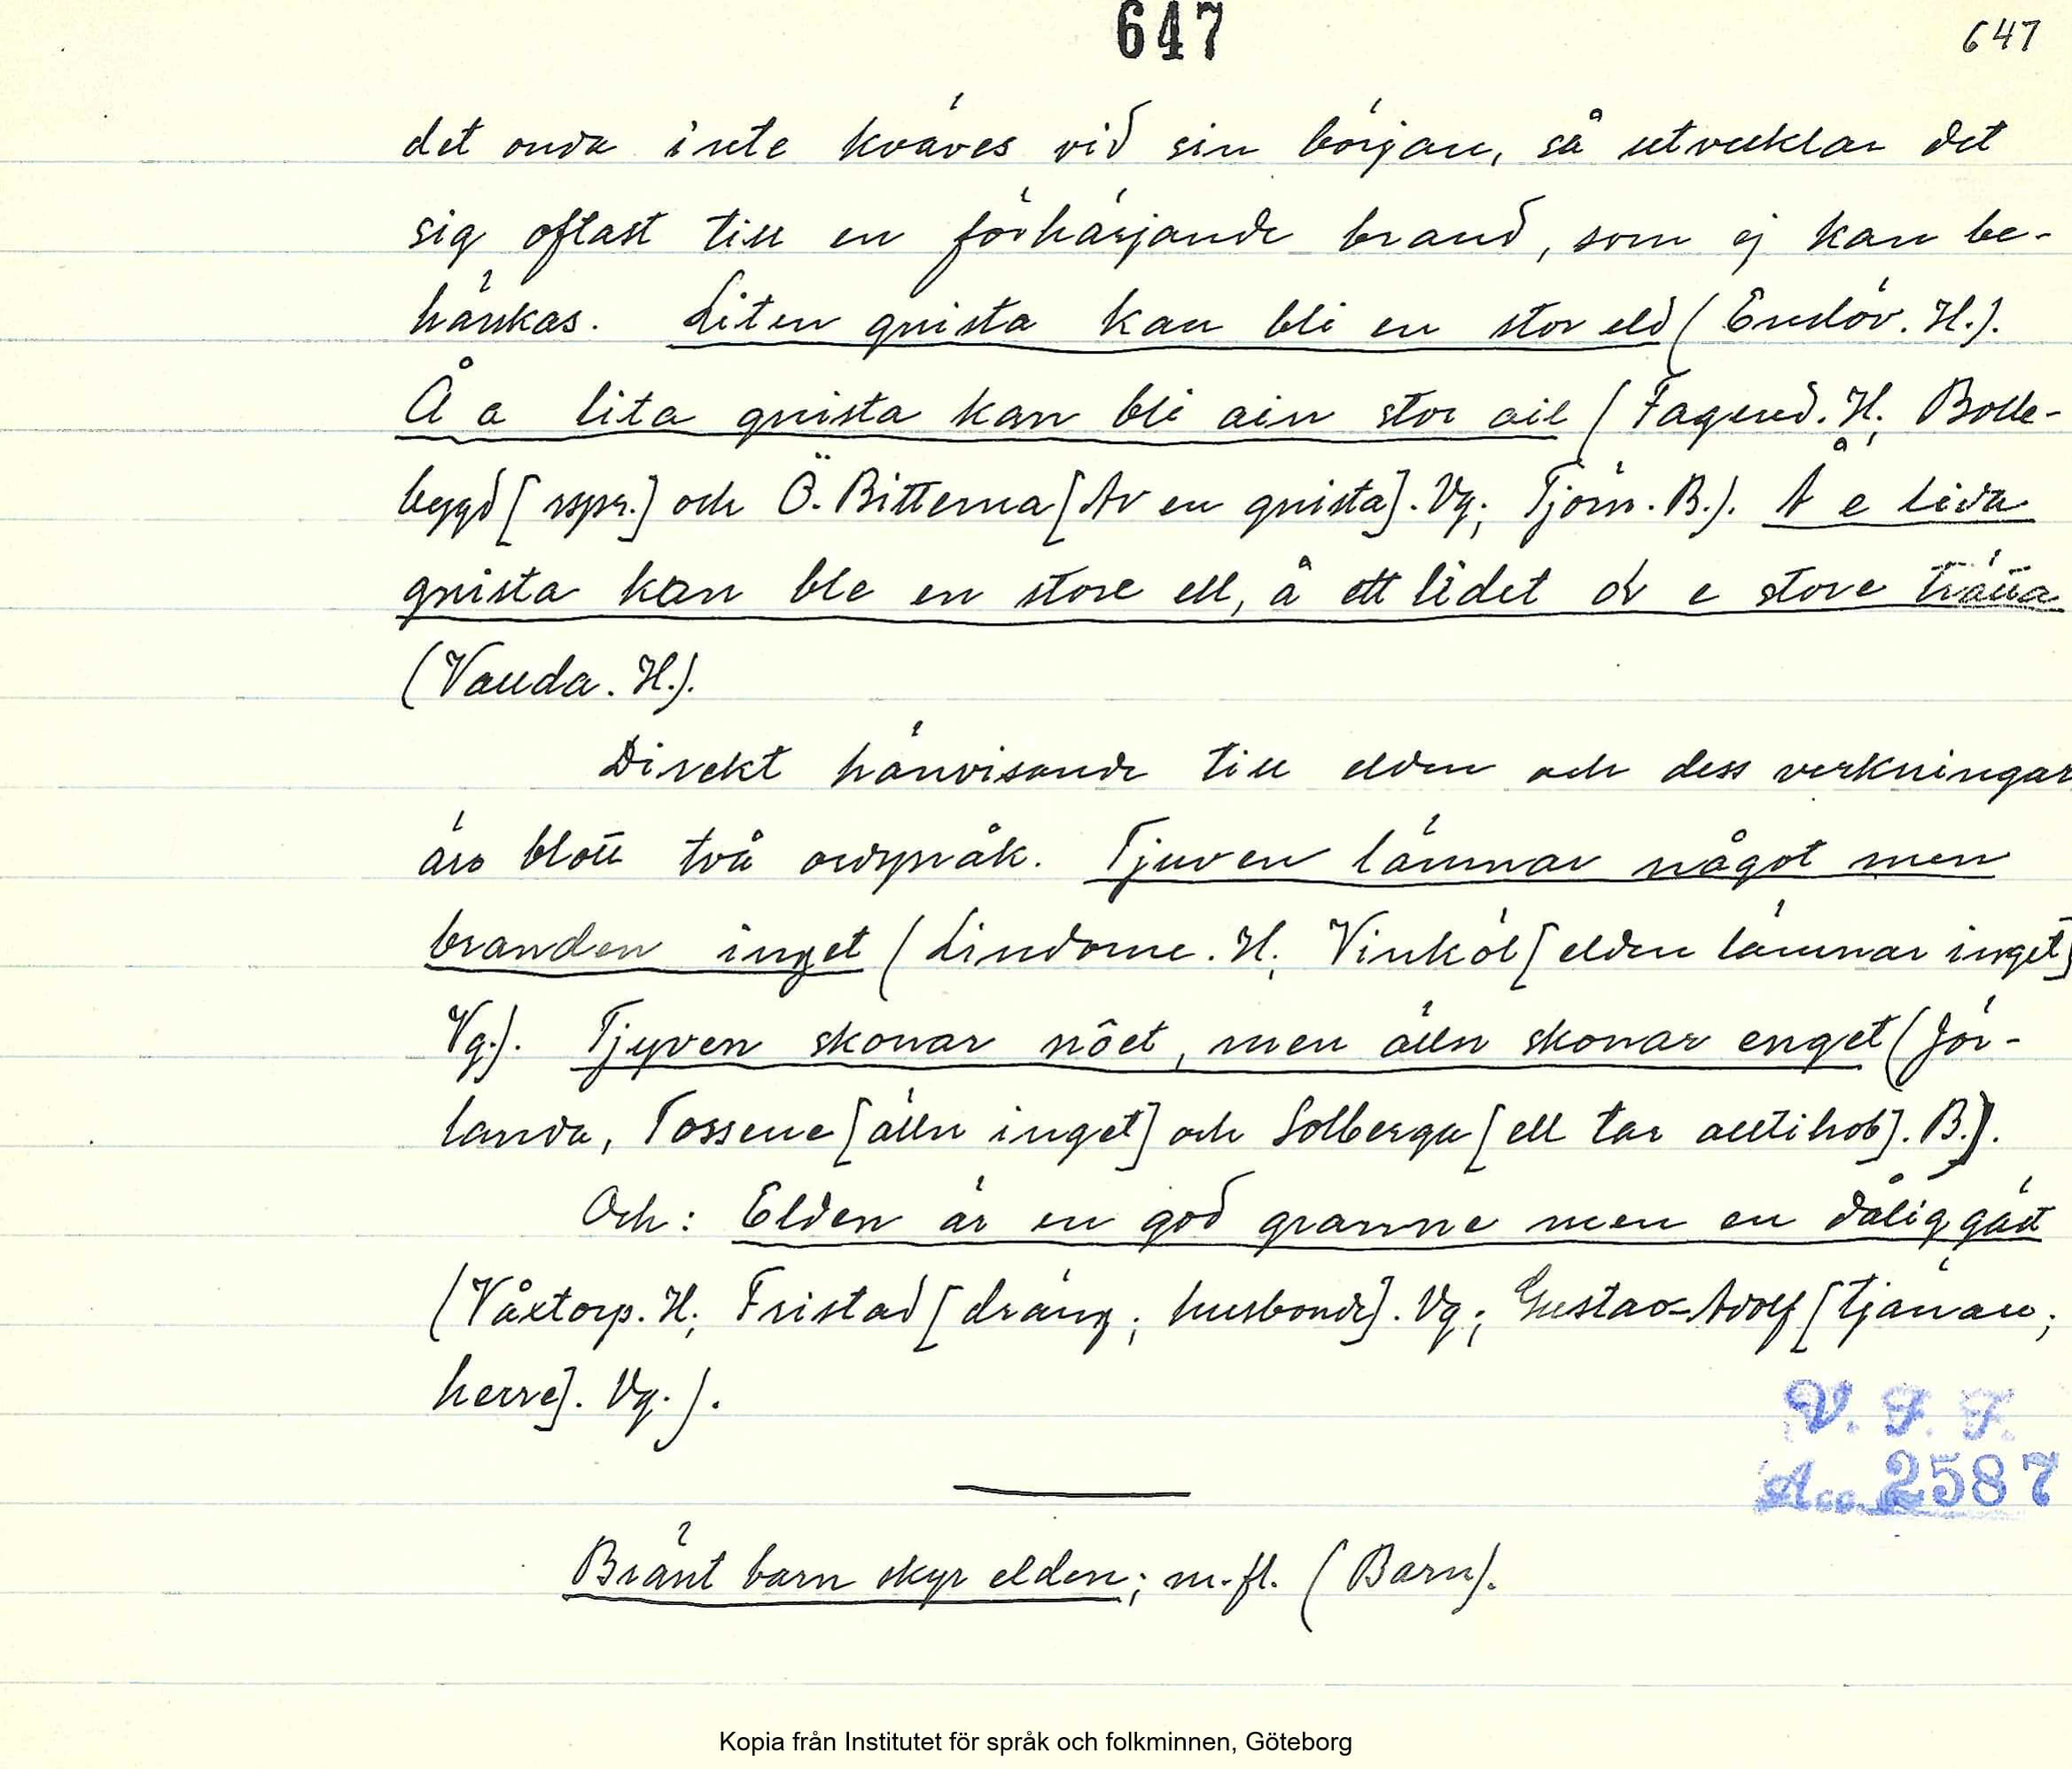 647
647
det onda inte kväves vid sin början, så utvecklar det
sig oftast till en förhärjande brand, som ej kan be-
hänkas. Liten gnista kan bli en stor eld (Enslöv. H.).
Å a lita gnista kan bli ain stor ail (Fagered. H; Bolle-
bygd [rspr.] och Ö. Bitterna [Av en gnista]. Vg; Tjörn. B.). Å e lida
gnista kan ble en store ell, å ett lidet or e store trätta
(Valda. H.).
Direkt hänvisande till elden och dess verkningar
äro blott två ordspråk. Tjuven lämnar något men
branden inget (Lindome. H; Vinköl [elden lämnar inget]
Vg.). Tjyven skonar nôet, men älln skonar enget (Jör-
landa, Tossene [älln inget] och Solberga [ell tar alltihob]. B.).
Och: Elden är en god granne men en dålig gäst
(Våxtorp. H; Fristad [dräng; husbonde]. Vg; Gustav-Adolf [tjänare;
herre]. Vg.).
V. F. F.
Acc. 2587
Bränt barn skyr elden; m.fl. (Barn).
Kopia från Institutet för språk och folkminnen, Göteborg